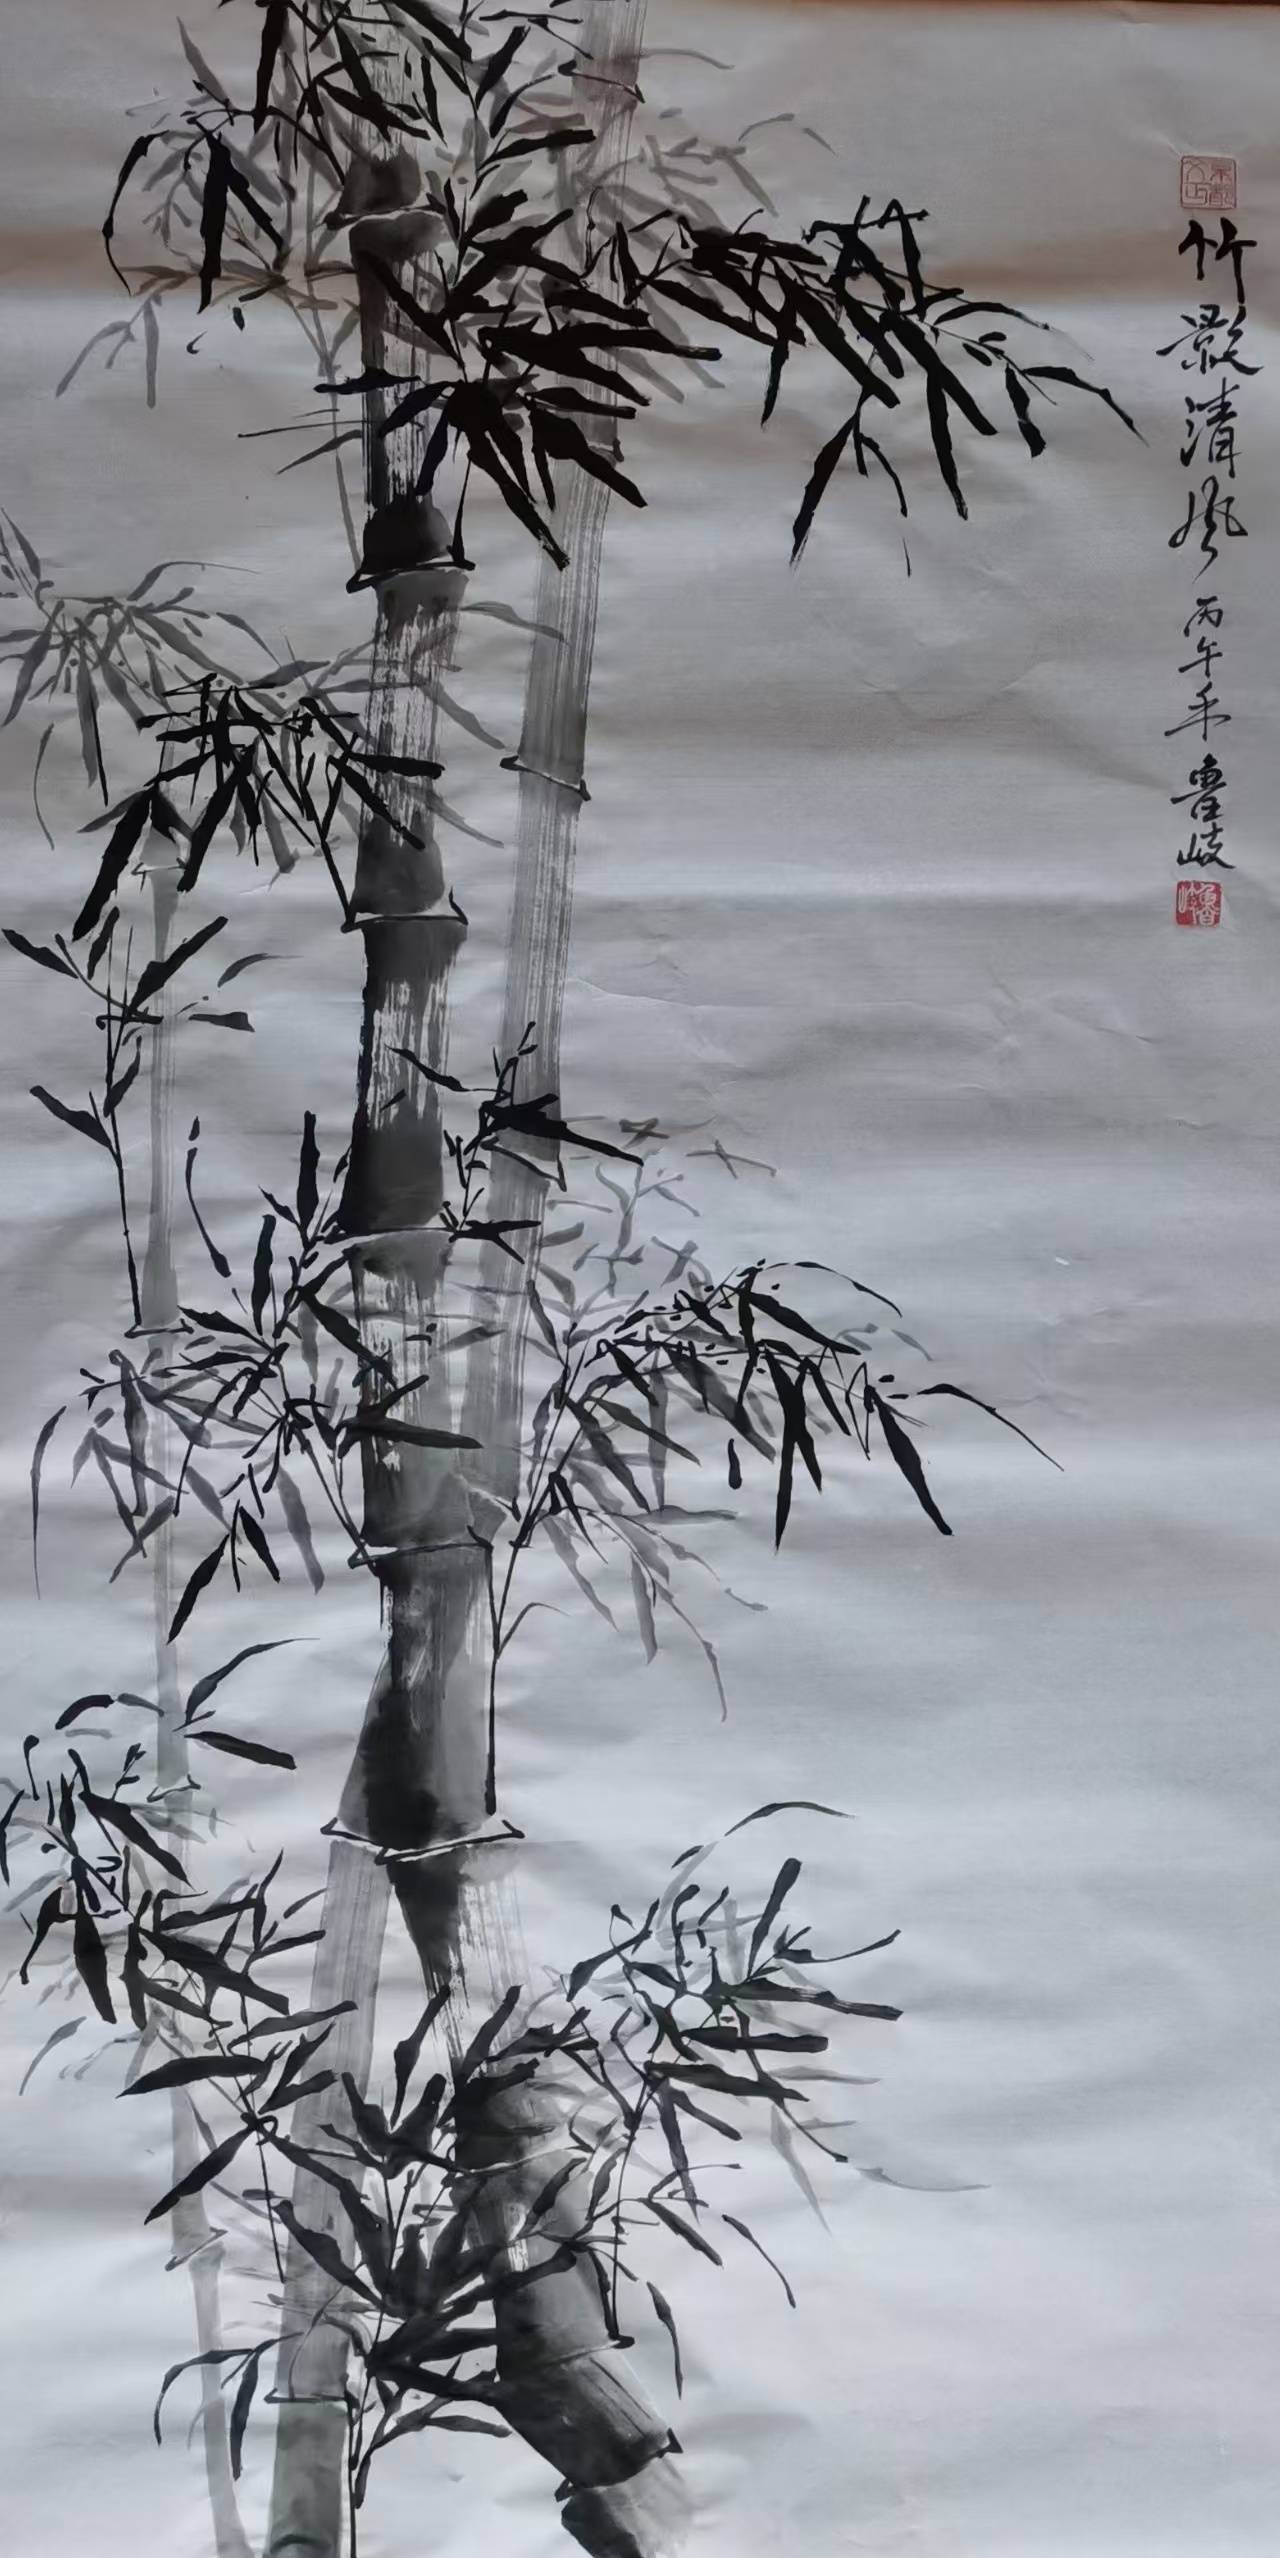 竹影清风
丙午年 鲁岐